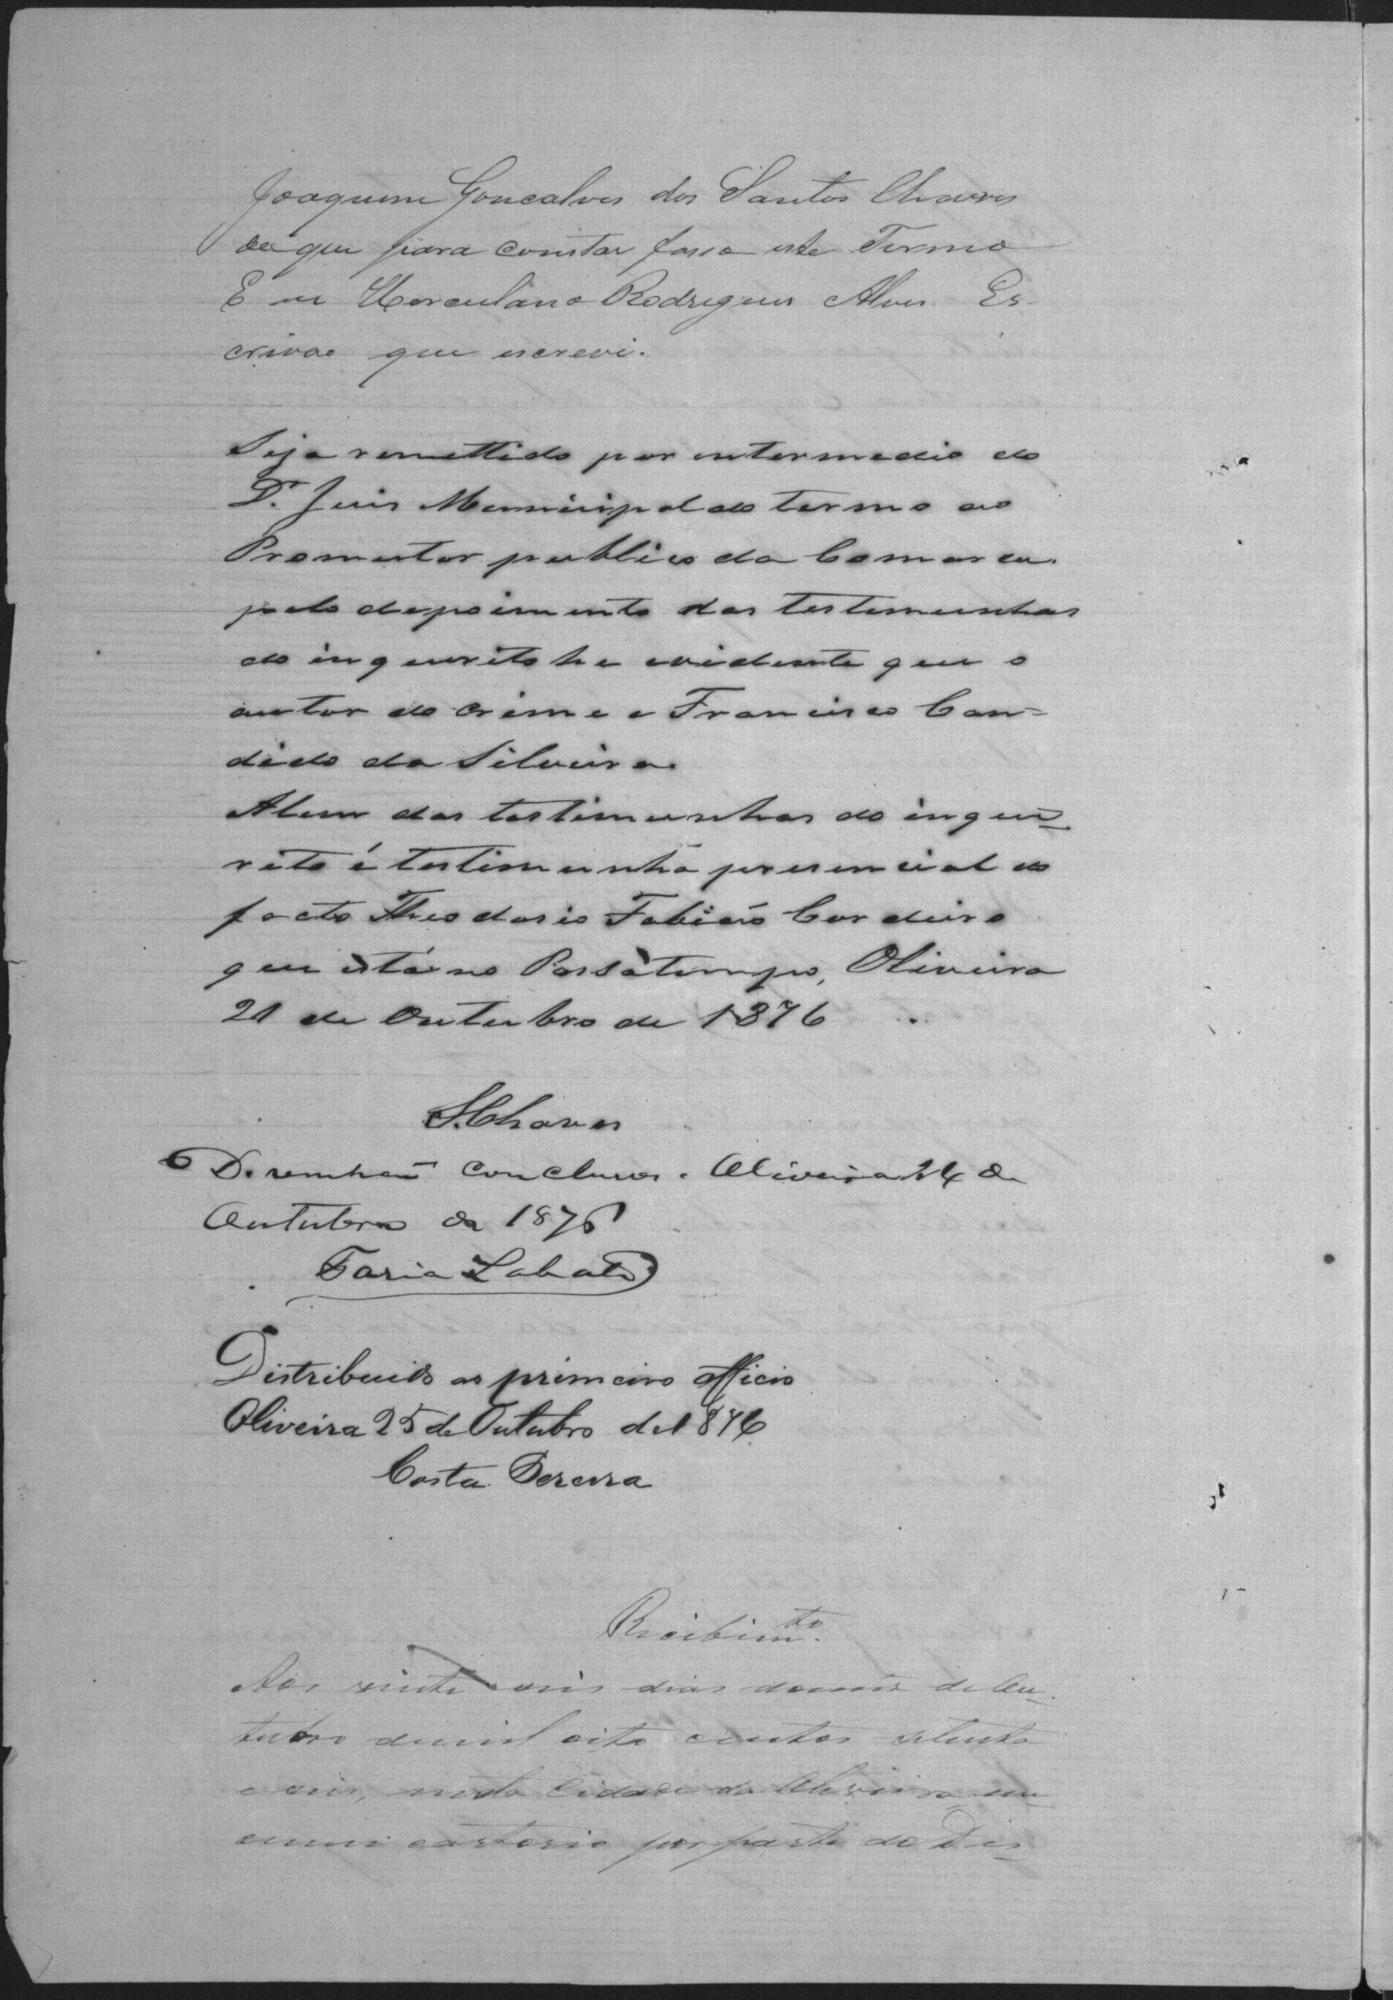 Joaquim Gonçalves dos Santos Chaves
do que para constar faso este Termo
E eu Herculano Rodrigues Alves Es-
crivao que escrevi.
Seja remettido por intermedio do
Dr. Juis Municipal do termo ao
Promotor publico da Comarca.
pelo depoimento das testemunhas
do inquerito he evidente que o
autor do crime e Francisco Can=
dido da Silveira.
Alem das testimunhas do inque=
rito é testimunha presencial do
facto Theodosio Fabião Cordeiro
que está no Passatempo, Oliveira
21 de Outubro de 1876
S. Chaves
D. venhão conclusos. Oliveira 24 de
Outubro de 1876
Faria Lobato
Distribuido ao primeiro officio
Oliveira 25 de Outubro de 1876
Costa Pereira
Recibimto.
Aos vinte seis dias do mez de Ou-
tubro de mil oito centos setenta
e seis, nesta Cidade da Oliveira em
meu cartorio por parte do